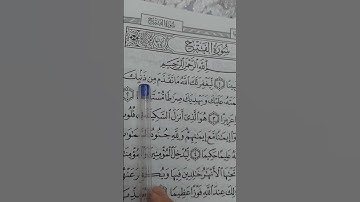 سورة الفتح
سُورَةُ الفَتْحِ
ٱللَّهِ ٱلرَّحْمَٰنِ ٱلرَّحِيمِ
لِّيَغْفِرَ لَكَ ٱللَّهُ مَا تَقَدَّمَ مِن ذَنۢبِكَ
عَلَيْكَ وَيَهْدِيَكَ صِرَٰطًا
عَزِيزًا ٣ هُوَ ٱلَّذِىٓ أَنزَلَ ٱلسَّكِينَةَ
إِيمَٰنًا مَّعَ إِيمَٰنِهِمْ وَلِلَّهِ جُنُودُ
عَلِيمًا حَكِيمًا ٤ لِّيُدْخِلَ ٱلْمُؤْمِنِينَ
تَحْتِهَا ٱلْأَنْهَٰرُ خَٰلِدِينَ فِيهَا وَيُكَفِّرَ عَنْهُمْ
عِندَ ٱللَّهِ فَوْزًا عَظِيمًا